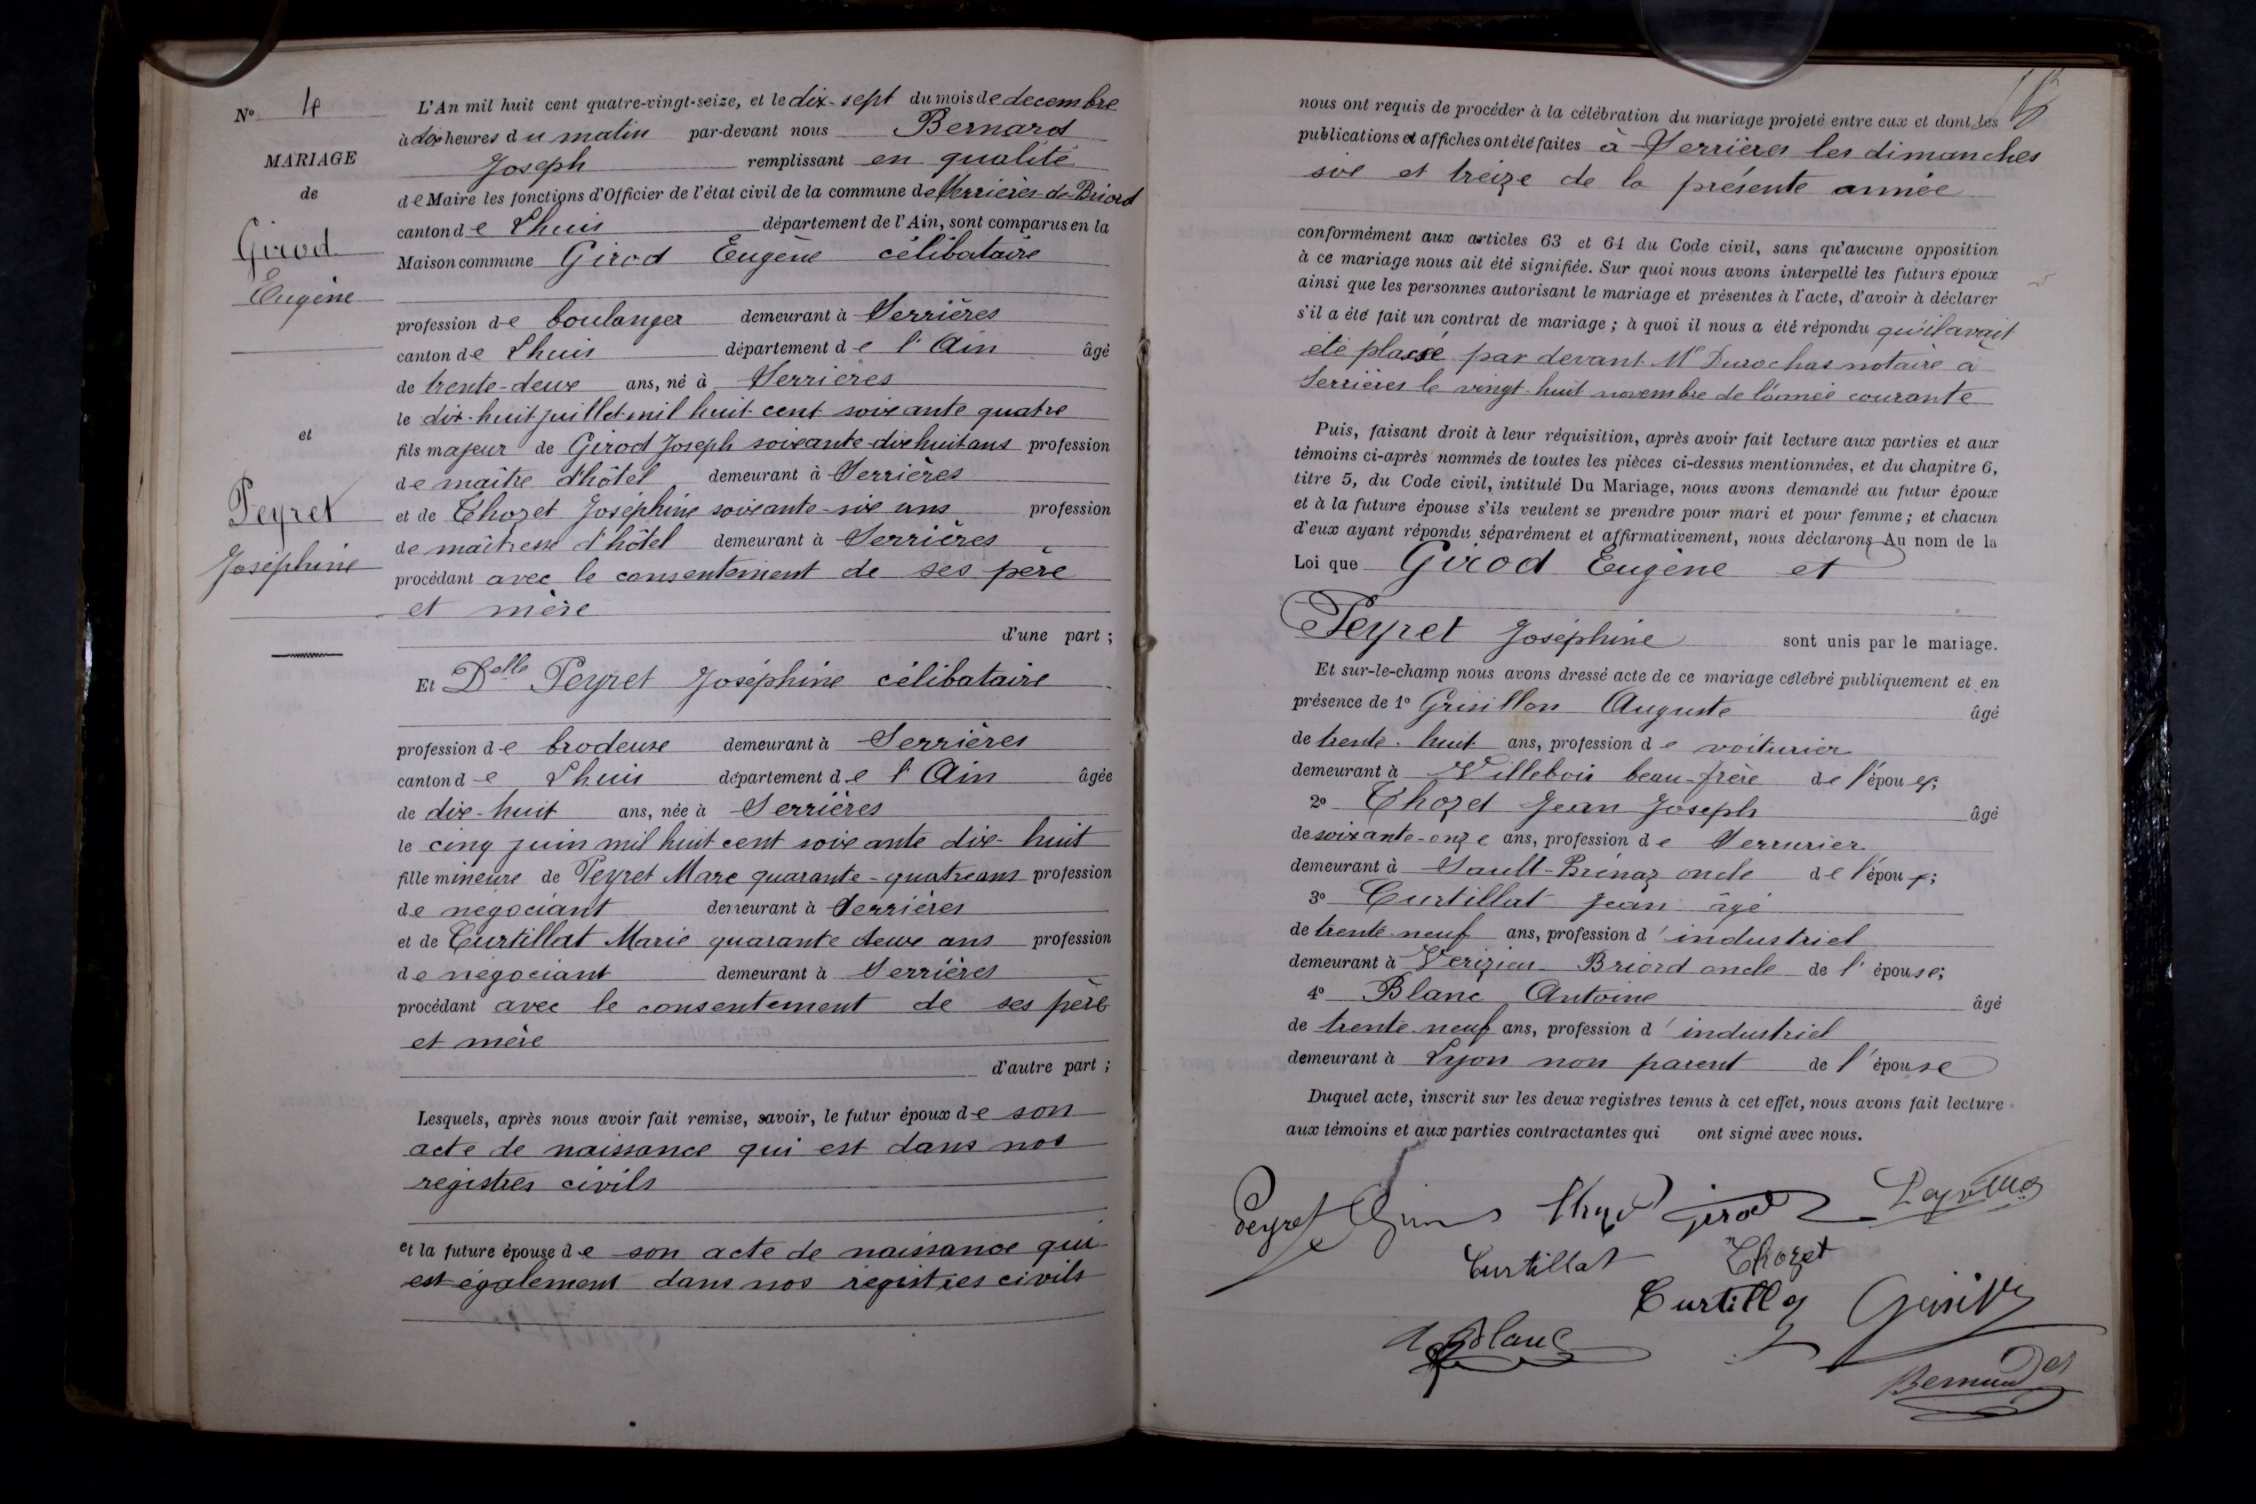 N° 4
MARIAGE
de
Girod
Eugène
et
Peyret
Joséphine
L'An mil huit cent quatre-vingt-seize, et le dix-sept du mois de decembre
à dix heures du matin par-devant nous Bernard
Joseph remplissant en qualité
de Maire les fonctions d'Officier de l'état civil de la commune de Serrières-de-Briord
canton de Lhuis département de l'Ain, sont comparus en la
Maison commune Girod Eugène célibataire
profession de boulanger demeurant à Serrières
canton de Lhuis département de l'Ain âgé
de trente-deux ans, né à Serrières
le dix-huit juillet mil huit cent soixante quatre
fils majeur de Girod Joseph soixante-dix huit ans profession
de maître d'hôtel demeurant à Serrières
et de Thozet Joséphine soixante-six ans profession
de maîtresse d'hôtel demeurant à Serrières
procédant avec le consentement de ses père
et mère
d'une part ;
Et Delle Peyret Joséphine célibataire
profession de brodeuse demeurant à Serrières
canton de Lhuis département de l'Ain âgée
de dix-huit ans, née à Serrières
le cinq juin mil huit cent soixante dix-huit
fille mineure de Peyret Marc quarante-quatre ans profession
de négociant demeurant à Serrières
et de Curtillat Marie quarante deux ans profession
de négociant demeurant à Serrières
procédant avec le consentement de ses père
et mère
d'autre part ;
Lesquels, après nous avoir fait remise, savoir, le futur époux de son
acte de naissance qui est dans nos
registres civils
et la future épouse de son acte de naissance qui
est également dans nos registres civils
nous ont requis de procéder à la célébration du mariage projeté entre eux et dont les
publications et affiches ont été faites à Serrières les dimanches
six et treize de la présente année
conformément aux articles 63 et 64 du Code civil, sans qu'aucune opposition
à ce mariage nous ait été signifiée. Sur quoi nous avons interpellé les futurs époux
ainsi que les personnes autorisant le mariage et présentes à l'acte, d'avoir à déclarer
s'il a été fait un contrat de mariage ; à quoi il nous a été répondu qu'il avait
été par devant Me Durochas notaire à
Serrières le vingt-huit novembre de l'année courante
Puis, faisant droit à leur réquisition, après avoir fait lecture aux parties et aux
témoins ci-après nommés de toutes les pièces ci-dessus mentionnées, et du chapitre 6,
titre 5, du Code civil, intitulé Du Mariage, nous avons demandé au futur époux
et à la future épouse s'ils veulent se prendre pour mari et pour femme ; et chacun
d'eux ayant répondu séparément et affirmativement, nous déclarons Au nom de la
Loi que Girod Eugène et
Peyret Joséphine sont unis par le mariage.
Et sur-le-champ nous avons dressé acte de ce mariage célébré publiquement et en
présence de 1° Grisillon Auguste âgé
de trente-huit ans, profession de voiturier
demeurant à Villebois beau-frère de l'époux;
2° Thozet Jean Joseph âgé
de soixante-onze ans, profession de Serrurier
demeurant à Sault-Brénaz oncle de l'époux;
3° Curtillat Jean âgé
de trente-neuf ans, profession d'industriel
demeurant à Verizieu Briord oncle de l'épouse;
4° Blanc Antoine âgé
de trente-neuf ans, profession d'industriel
demeurant à Lyon non parent de l'épouse
Duquel acte, inscrit sur les deux registres tenus à cet effet, nous avons fait lecture
aux témoins et aux parties contractantes qui ont signé avec nous.
Peyret Girod
Curtillat Thozet
Curtillat
A Blanc
Bernard